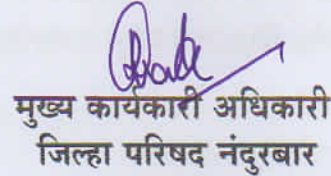 मुख्य कार्यकारी अधिकारी
जिल्हा परिषद नंदुरबार